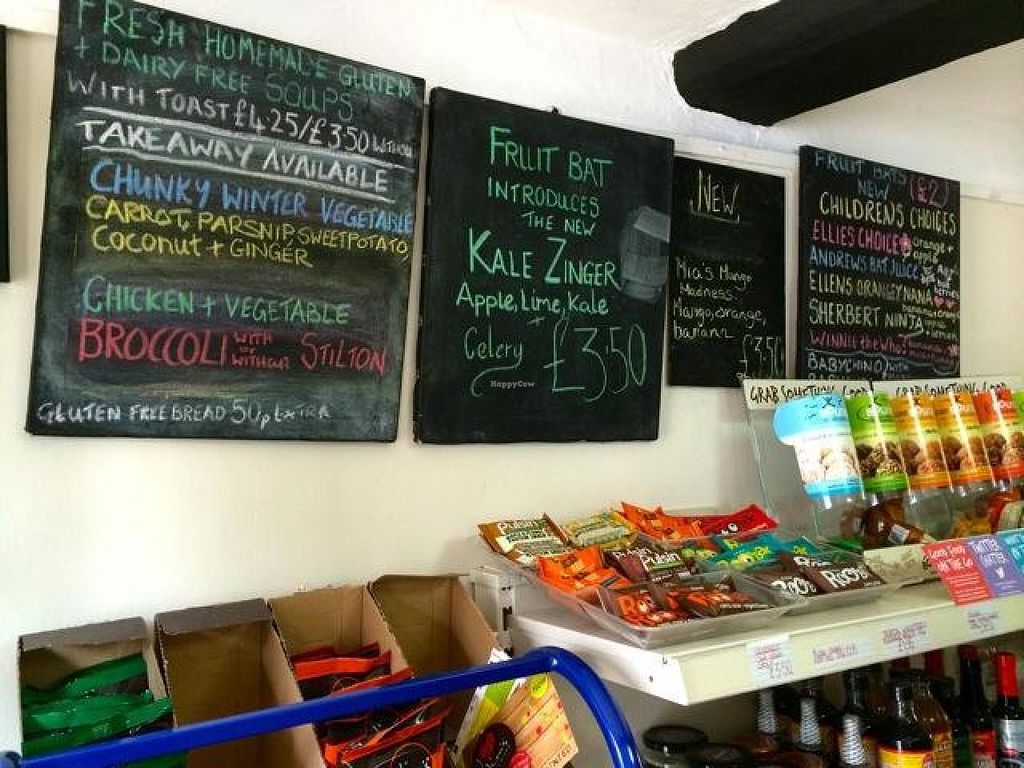 FRESH HOMEMADE GLUTEN
+ DAIRY FREE SOUPS
WITH TOAST £4.25/£3.50 WITHOUT
TAKEAWAY AVAILABLE
CHUNKY WINTER VEGETABLE
CARROT, PARSNIP, SWEETPOTATO,
COCONUT + GINGER
CHICKEN + VEGETABLE
BROCCOLI WITH OR WITHOUT STILTON
GLUTEN FREE BREAD 50p EXTRA
FRUIT BAT
INTRODUCES
THE NEW
KALE ZINGER
Apple, Lime, Kale
+
Celery £3.50
HappyCow
NEW
Mia's Mango
Madness:
Mango, orange,
banana
£3.50
FRUIT BATS
NEW (£2)
CHILDRENS CHOICES
ELLIES CHOICE orange +
apple
ANDREWS BAT JUICE
ELLENS ORANGEYNANA
SHERBERT NINJA
WINNIE the Who
BABYCHINO WITH
GRAB SOMETHING GOOD
GRAB SOMETHING GOOD
Pulsin
Pulsin
Pulsin
Roo'bar
GOOD FOOD
ON THE GO
TWITTER